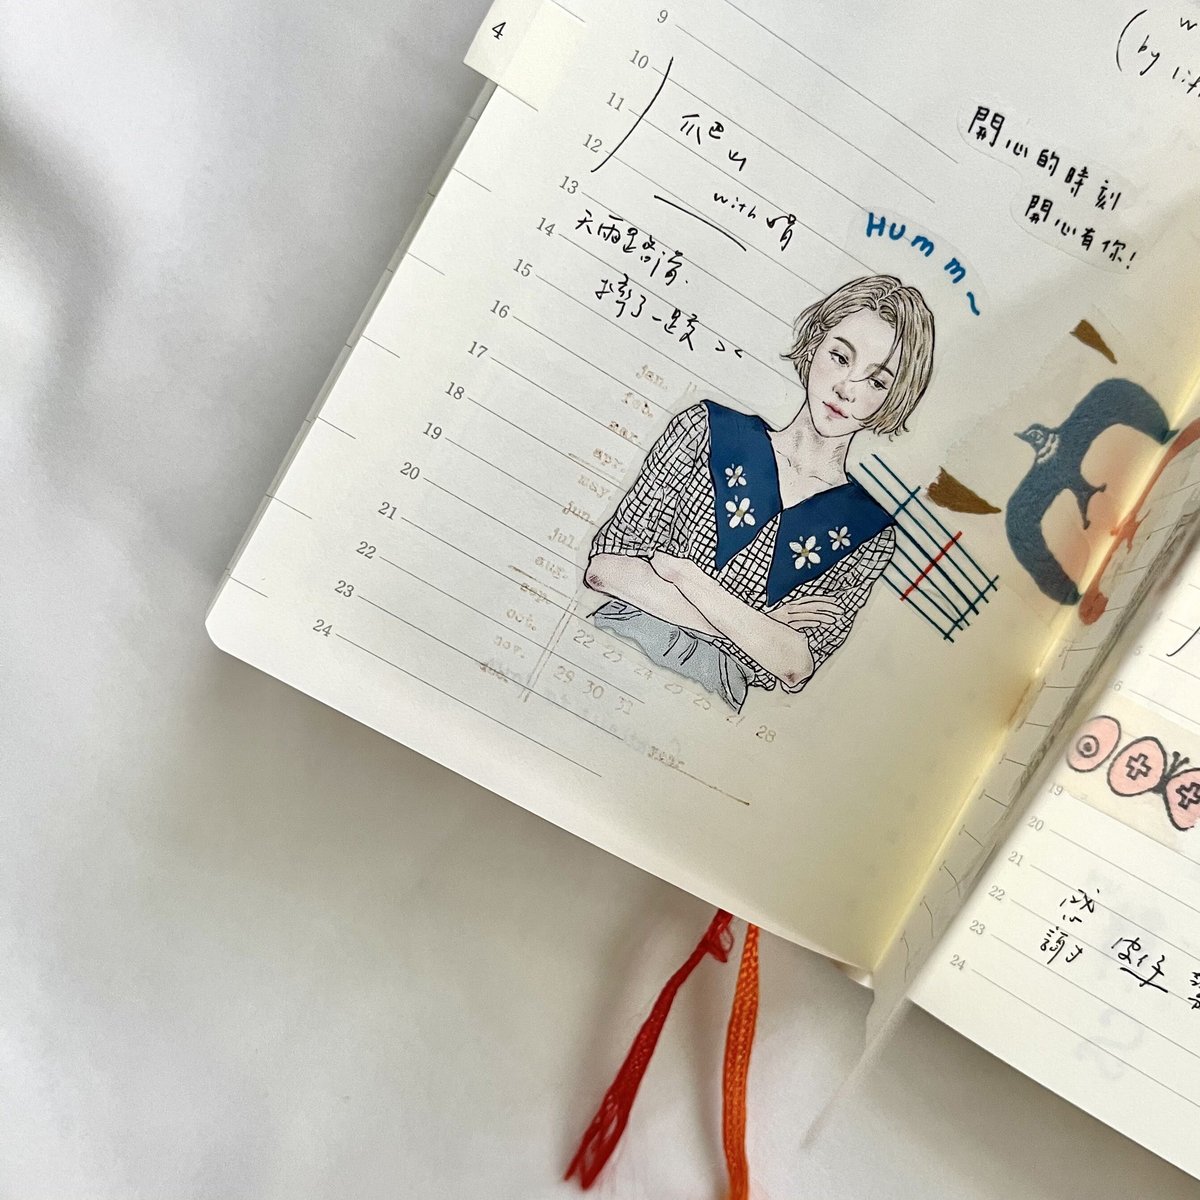 4
9
10
11
12
13
14
15
16
17
18
19
20
21
22
23
24
爬山
with 娟
天雨路滑.
摔了一跤 ><
(by
開心的時刻
開心有你!
HUMM~
jan.
feb.
mar.
apr.
may.
jun.
jul.
aug.
sep.
oct.
nov.
22 23 24 25 26 27 28
29 30 31
19
20
21
22
23
24
感謝 皮仔